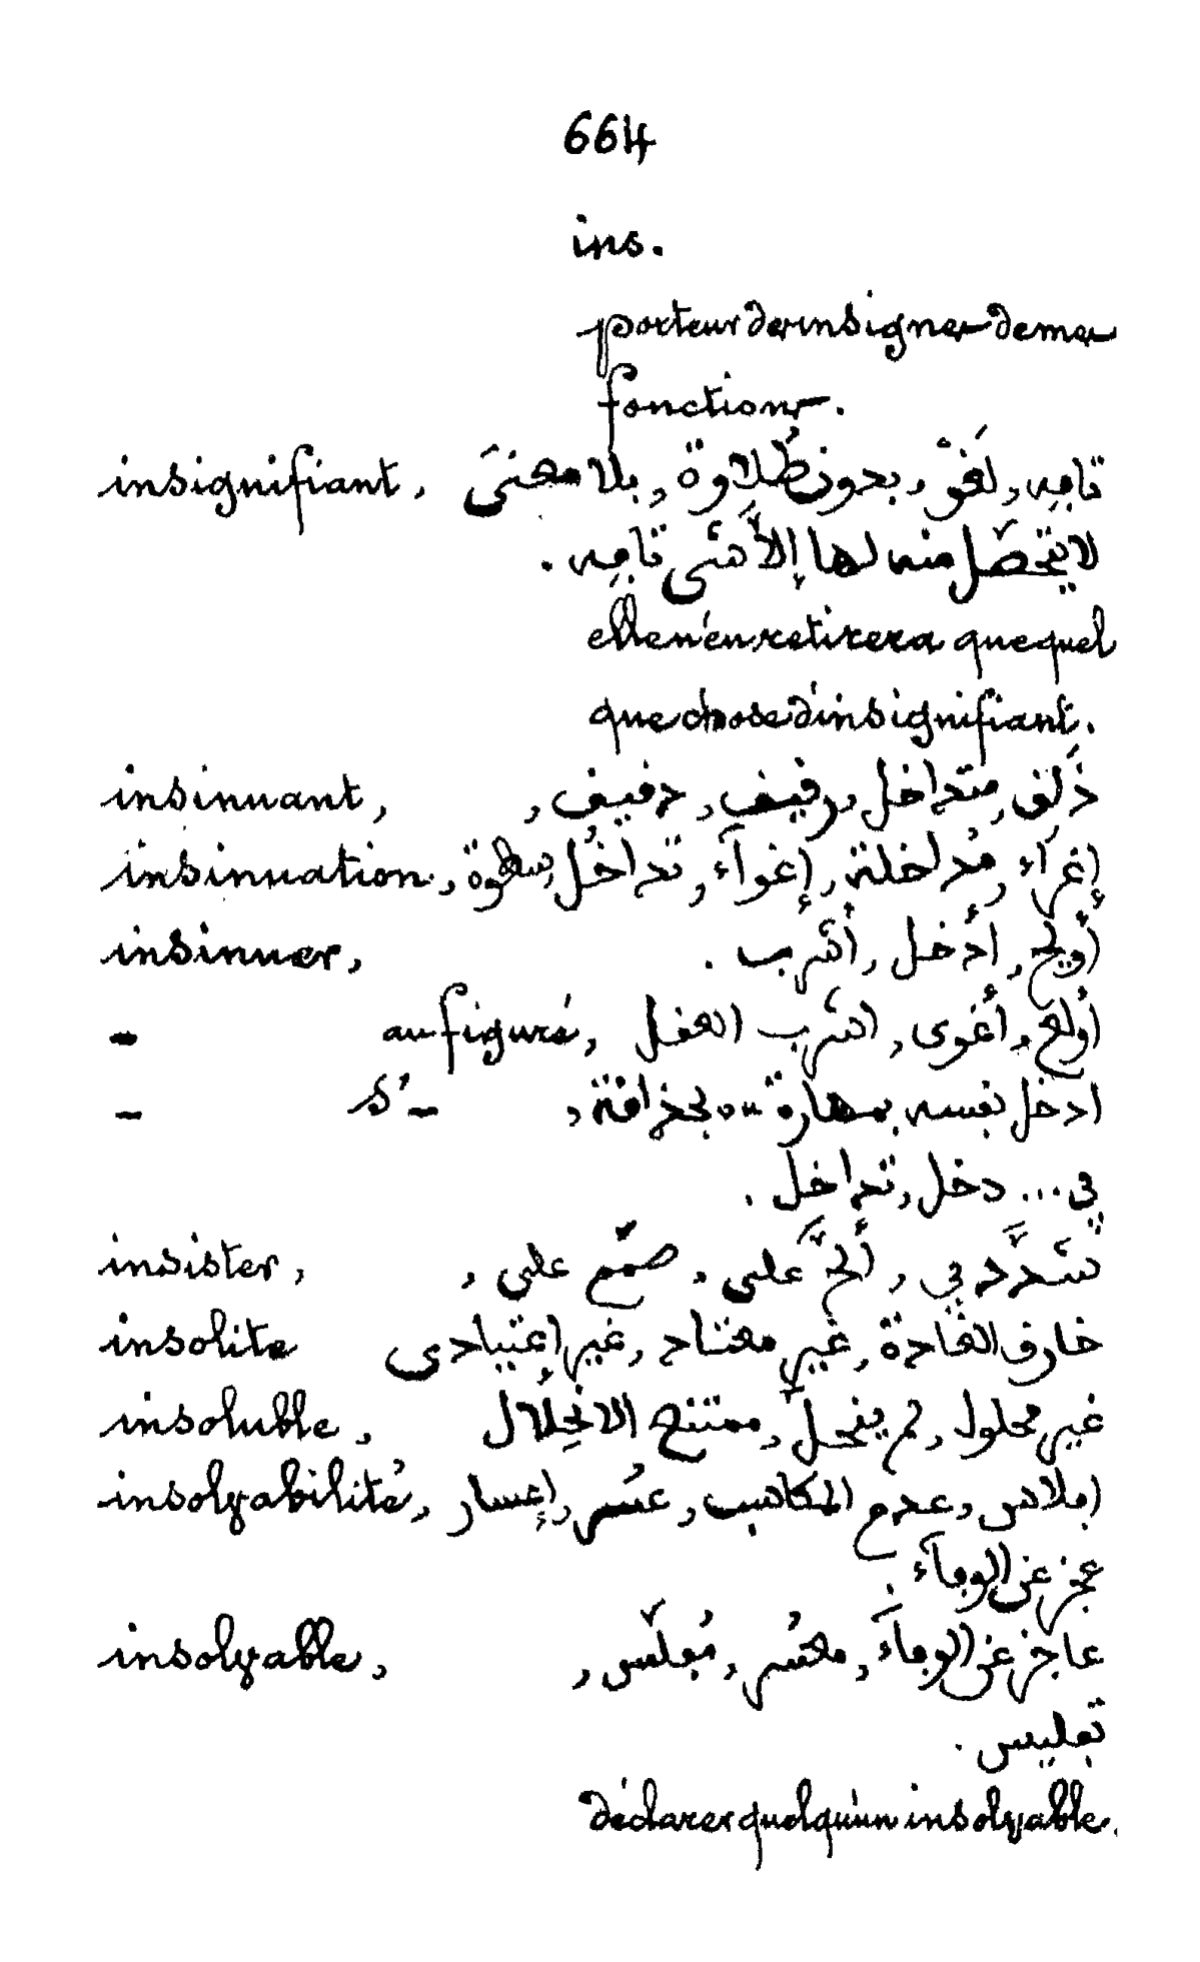 664
ins.
porteur des insignes de mes
fonctions.
insignifiant, تافه, لغو, بدون طلاوة, بلا معنى
لا يتحصّل منه لها إلاّ شى تافه.
elle n'en retirera que quel
que chose d'insignifiant.
insinuant, ذلق, متداخل, رفيف, دفيف,
insinuation, إغرآء, مُداخلة, إغوآء, تداخُل, سطوة
insinuer, أولج, أدخل, أشرب.
– au figuré, أولع, أغوى, اشرب العقل
– s'– ادخل نفسه بمهارة ou بحذاقة,
في... دخل, تداخل.
insister, تشدّد في, ألحّ على, صمّم على,
insolite خارق العادة, غير معتاد, غير إعتيادى
insoluble, غير محلول, لم ينحلّ, ممتنع الانحِلال
insolvabilité, افلاس, عدم المكاسب, عسُر, إعسار
عجز عن الوفآء.
insolvable, عاجز عن الوفآء, معسُر, مُفلّس,
تفليس.
déclarer quelqu'un insolvable.